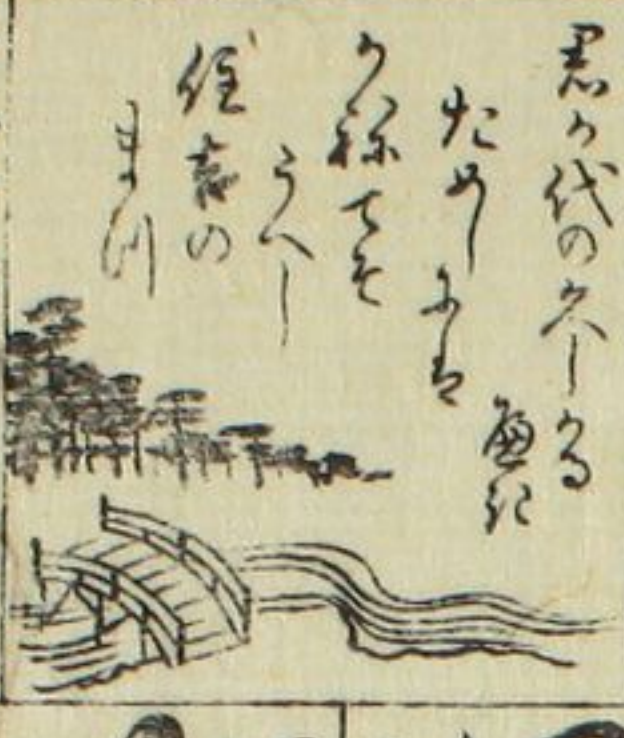 君か代の久しかる
へき
ためしには
かねてそ
うへし
住吉の
まつ